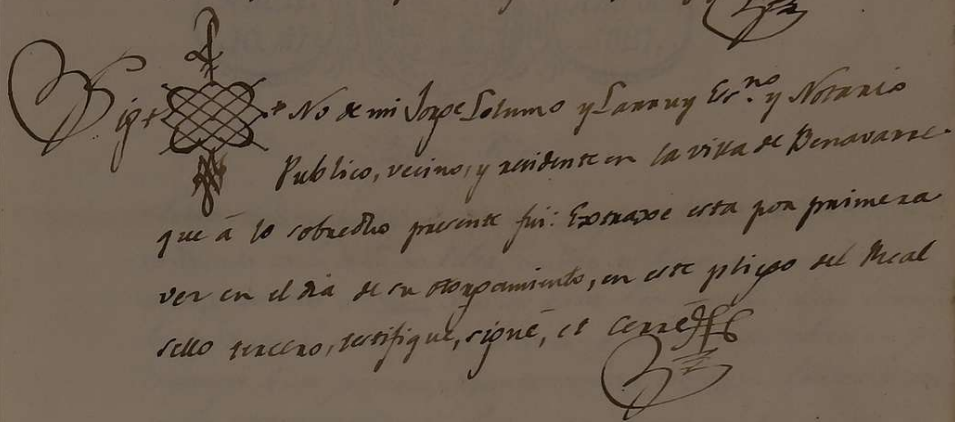 Sig+ +No de mi Jorge Solumo y Larruy Es.no y Notario
Publico, vecino, y residente en la villa de Benavarre
que â lo sobredho presente fui: Extraxe esta por primera
vez en el dia de su otorgamiento, en este pliego del Real
sello tercero, testifiquê, signê, et cerrê